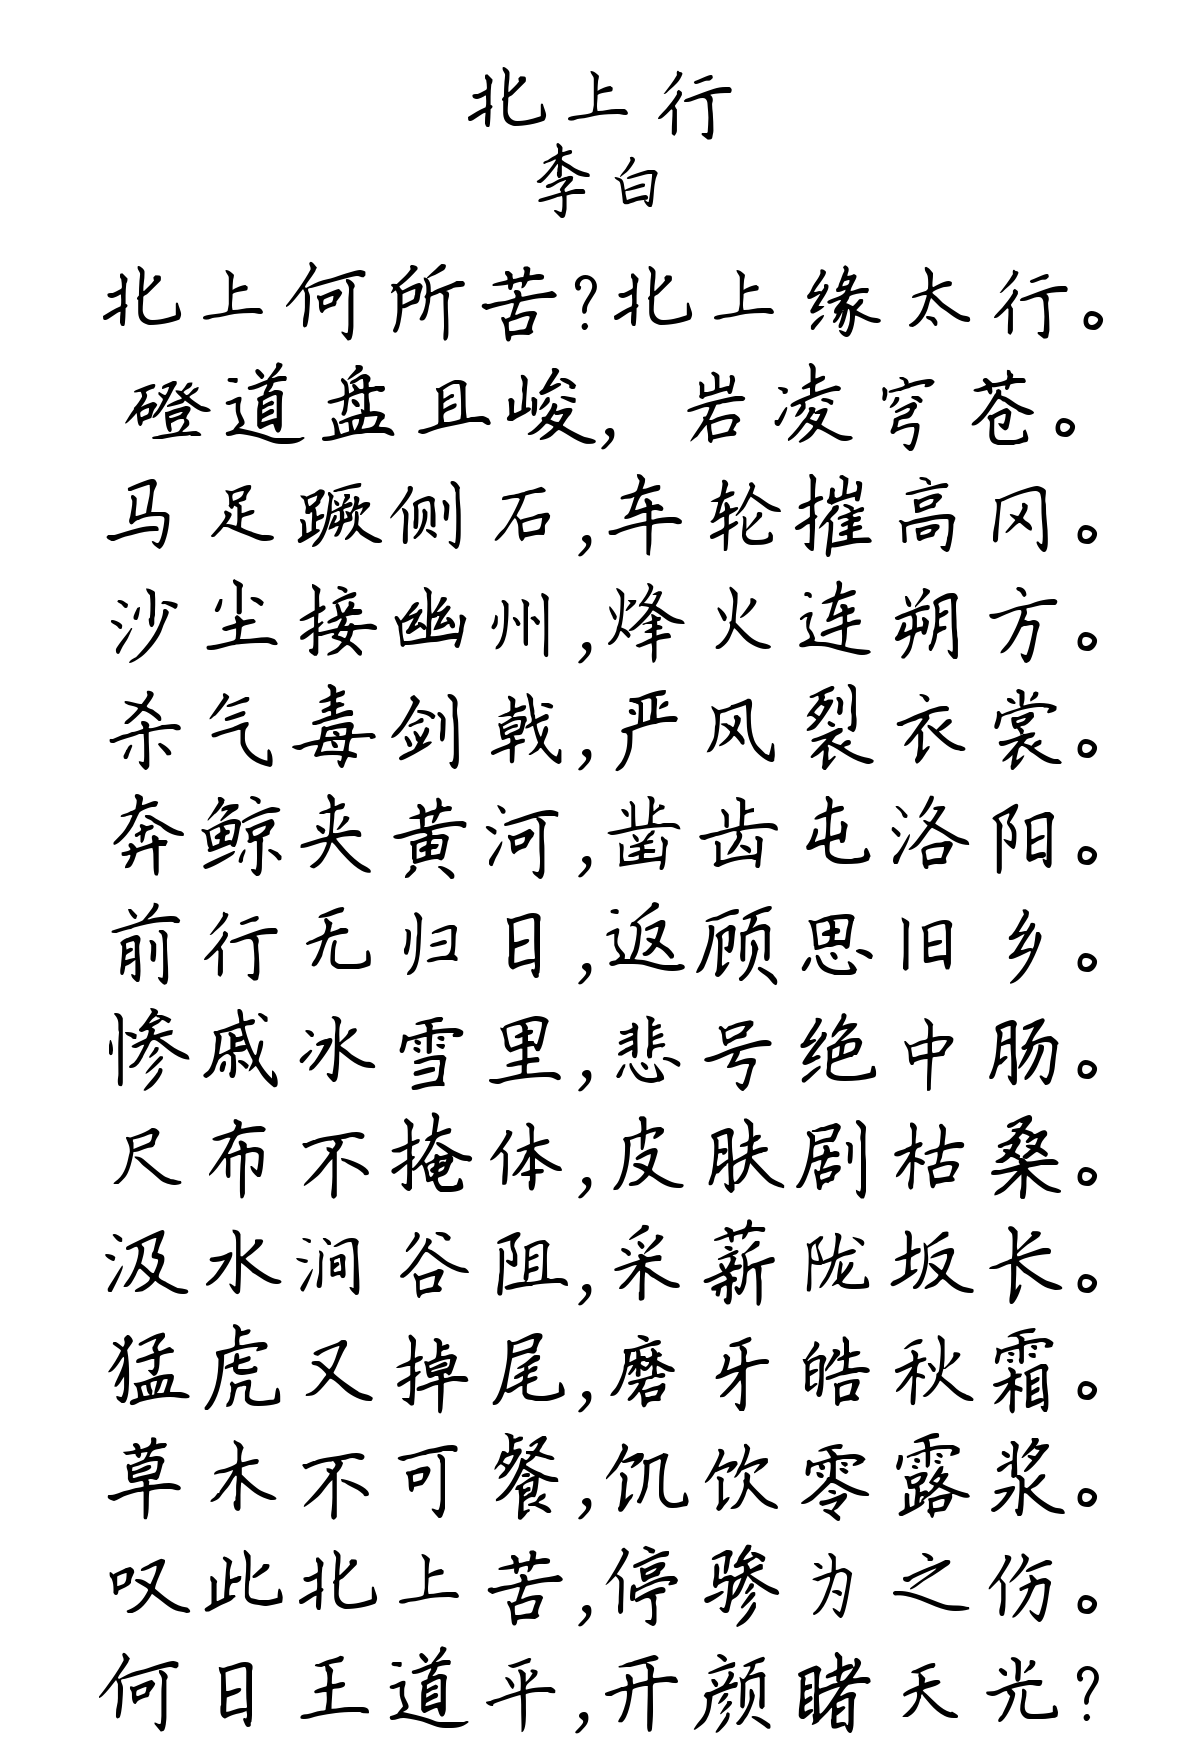 北上行
李白
北上何所苦?北上缘太行。
磴道盘且峻,岩凌穹苍。
马足蹶侧石,车轮摧高冈。
沙尘接幽州,烽火连朔方。
杀气毒剑戟,严风裂衣裳。
奔鲸夹黄河,凿齿屯洛阳。
前行无归日,返顾思旧乡。
惨戚冰雪里,悲号绝中肠。
尺布不掩体,皮肤剧枯桑。
汲水涧谷阻,采薪陇坂长。
猛虎又掉尾,磨牙皓秋霜。
草木不可餐,饥饮零露浆。
叹此北上苦,停骖为之伤。
何日王道平,开颜睹天光?